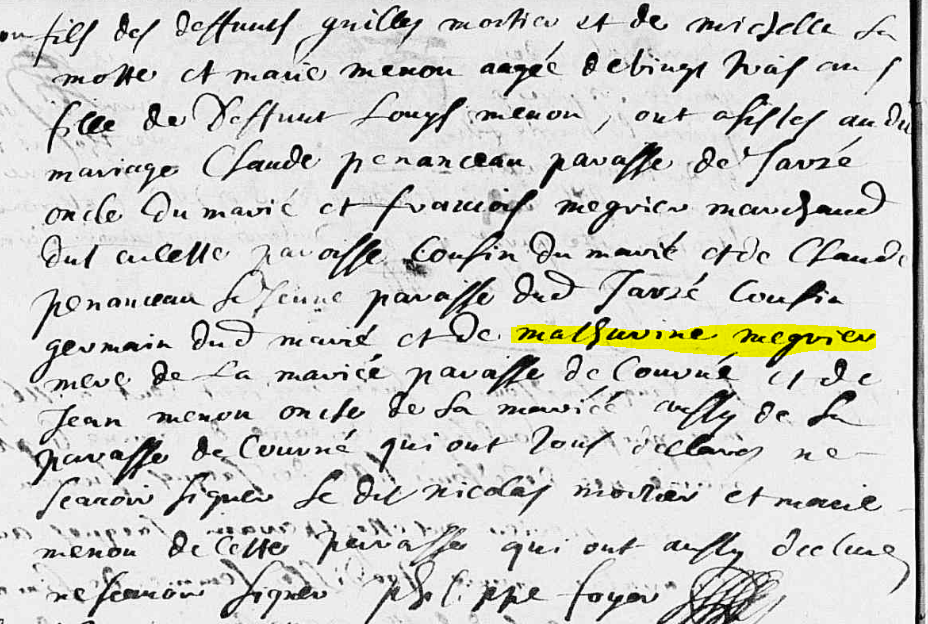 fils des deffunts guilles mortier et de michelle la
motte et marie menou aagée de vingt trois ans
fille de deffunt Louys menou, ont asistés audit
mariage Claude penanceau parasse de Jarzé
oncle du marié et francois megrier marchand
parasse cousin du marié et de Claude
penanceau le Jeune parasse dud Jarzé cousin
germain dud marié et de mathurine megrier
mere de la mariée parasse de Couvné et de
Jean menou oncle de la mariée aussy de la
parasse de Couvné qui ont tous declarés ne
scavoir signer le dit nicolas mortier et marie
menou de cette parasse qui ont aussy declarez
ne scavoir signer philippe foyer